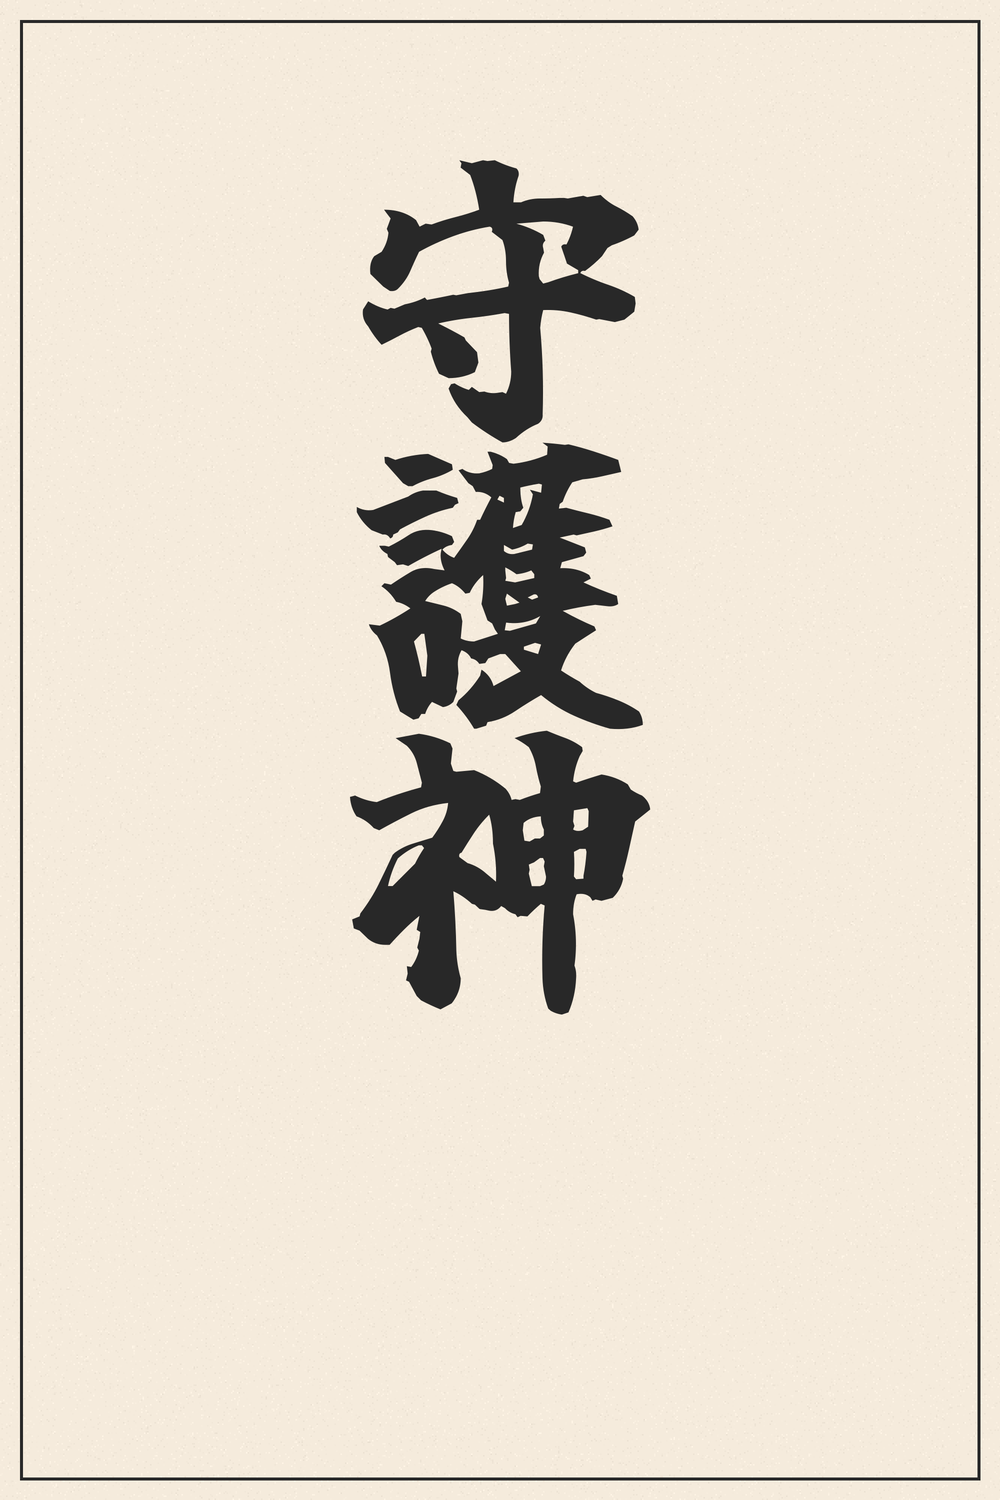 守護神